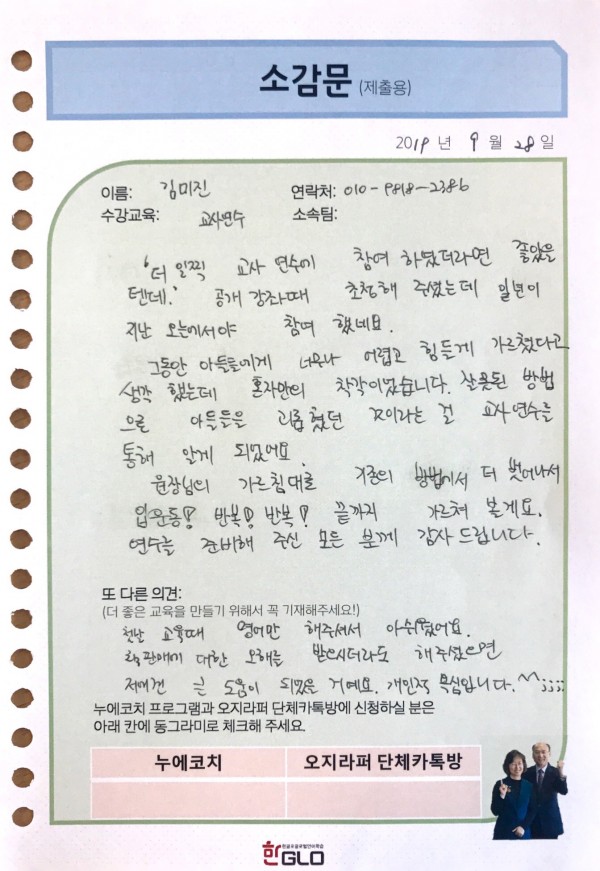 소감문 (제출용)
2019 년 9 월 28 일
이름: 김미진 연락처: 010-9818-2386
수강교육: 교사연수 소속팀:
'더 일찍 교사 연수에 참여 하였더라면 좋았을
텐데.' 공개 강좌때 초청해 주셨는데 일년이
지난 오늘에서야 참여 했네요.
그동안 아들들에게 너무나 어렵고 힘들게 가르쳤다고
생각 했는데 혼자만의 착각이었습니다. 잘못된 방법
으로 아들들을 괴롭혔던 것이라는 걸 교사연수를
통해 알게 되었어요.
원장님의 가르침대로 기존의 방법에서 더 벗어나서
입운동! 반복! 반복! 끝까지 가르쳐 볼게요.
연수를 준비해 주신 모든 분께 감사 드립니다.
또 다른 의견:
(더 좋은 교육을 만들기 위해서 꼭 기재해주세요!)
첫날 교육때 영어만 해주셔서 아쉬웠어요.
책판매에 대한 오해는 받으시더라도 해주셨으면
저에겐 큰 도움이 되었을 거예요. 개인적 욕심입니다.^^;;;;
누에코치 프로그램과 오지라퍼 단체카톡방에 신청하실 분은
아래 칸에 동그라미로 체크해 주세요.
누에코치 오지라퍼 단체카톡방
한GLO